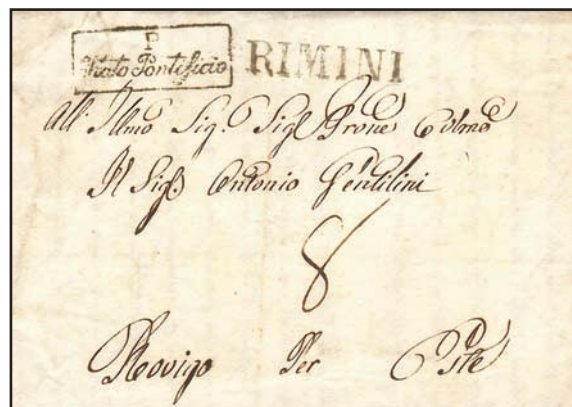 P
Stato Pontificio RIMINI
All' Illmo Sig: Sigr Prone Colmo
Il Sigr: Antonio Gentilini
8
Rovigo Per Este